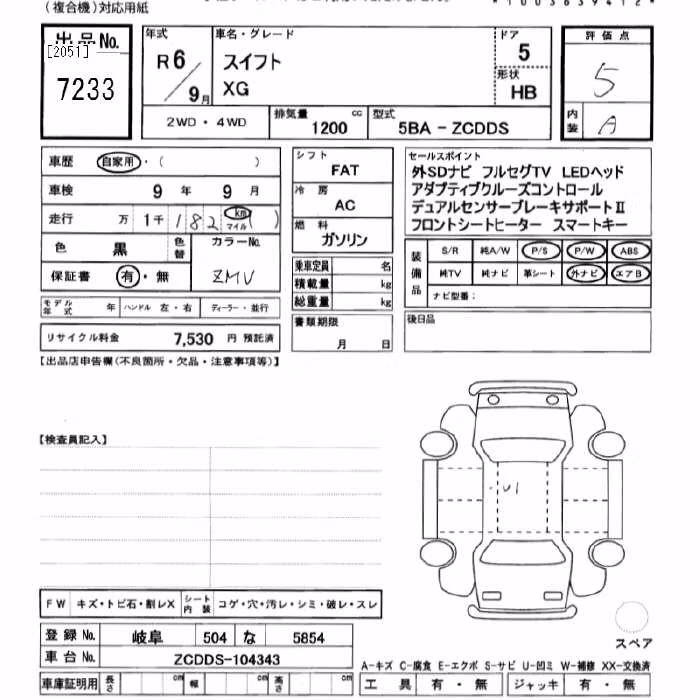 (複合機)対応用紙
*1003639412*
出品No. [2051] 7233
年式 R6/9月
車名・グレード スイフト XG
ドア 5
形状 HB
評価点 5
内装 A
2WD・4WD
排気量 1200 cc
型式 5BA-ZCDDS
車歴 自家用・( )
車検 9年 9月
走行 万 1千182 km マイル ( )
色 黒 色替 カラーNo. ZMV
保証書 有・無
モデル年式 年 ハンドル 左・右 ディーラー・並行
リサイクル料金 7,530 円 預託済
シフト FAT
冷房 AC
燃料 ガソリン
乗車定員 名
積載量 kg
総重量 kg
書類期限 月 日
セールスポイント
外SDナビ フルセグTV LEDヘッド
アダプティブクルーズコントロール
デュアルセンサーブレーキサポートⅡ
フロントシートヒーター スマートキー
装備品 S/R 純A/W P/S P/W ABS
純TV 純ナビ 革シート 外ナビ エアB
ナビ型番:
後日品
【出品店申告欄(不良箇所・欠品・注意事項等)】
【検査員記入】
U1
FW キズ・トビ石・割レX シート内装 コゲ・穴・汚レ・シミ・破レ・スレ
登録No. 岐阜 504 な 5854
車台No. ZCDDS-104343
車庫証明用 長さ cm 幅 cm 高さ cm
スペア
A-キズ C-腐食 E-エクボ S-サビ U-凹ミ W-補修 XX-交換済
工具 有・無 ジャッキ 有・無